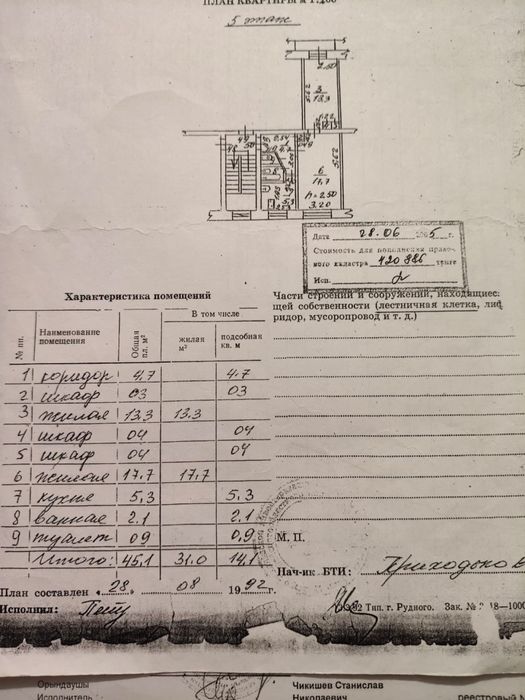 ПЛАН КВАРТИРЫ М 1:200
5 этаж
2.50
5.62
3
13.3
6
17.7
5.62
h=2.50
3.20
Дата 28.06 г.
Стоимость для пополнения право-
вого кадастра 420 886 тенге
Исп.
Характеристика помещений
№ пп.
Наименование помещения
Общая пл. м²
В том числе
жилая м²
подсобная кв. м
1 коридор 4.7 4.7
2 шкаф 03 03
3 жилая 13.3 13.3
4 шкаф 04 04
5 шкаф 04 04
6 жилая 17.7 17.7
7 кухня 5.3 5.3
8 ванная 2.1 2.1
9 туалет 09 0,9
Итого: 45,1 31.0 14,1
Части строений и сооружений, находящиес:
щей собственности (лестничная клетка, лиф
ридор, мусоропровод и т. д.)
М. П.
Нач-ик БТИ: Приходько В
План составлен «28» 08 1992 г.
Исполнил:
Тип. г. Рудного. Зак. №
Орындаушы
Исполнитель
Чикишев Станислав
Николаевич
реестровый